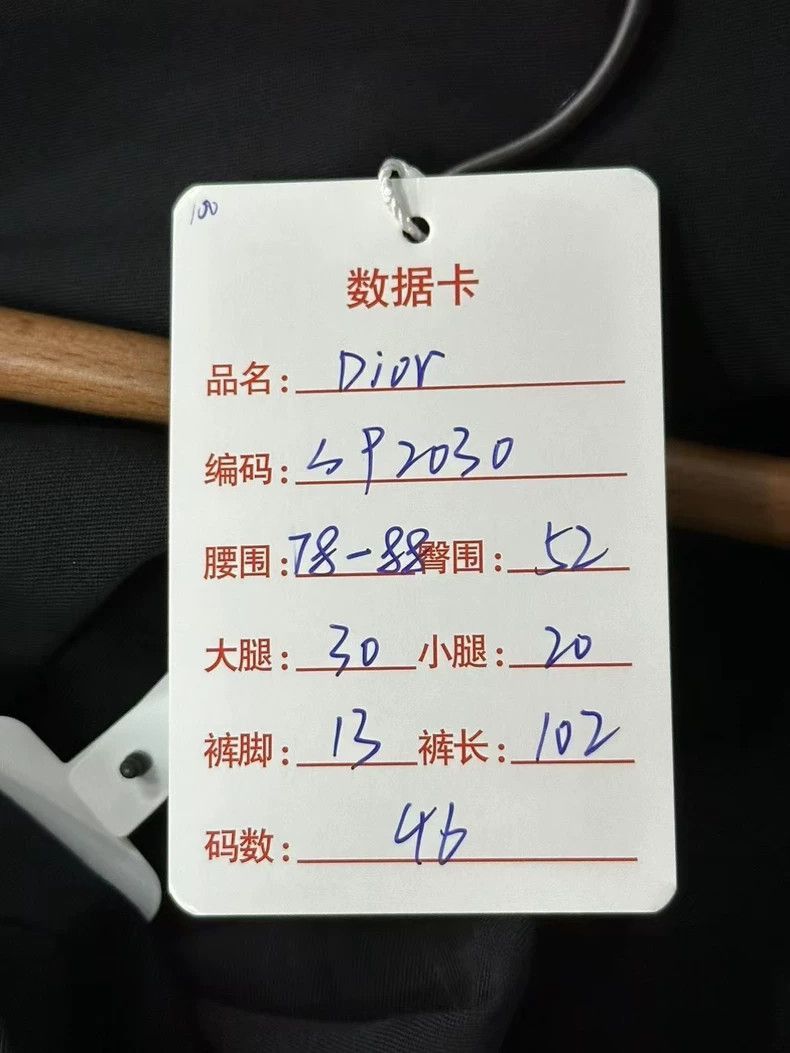 100
数据卡
品名: Dior
编码: SP2030
腰围: 78-88 臀围: 52
大腿: 30 小腿: 20
裤脚: 13 裤长: 102
码数: 46